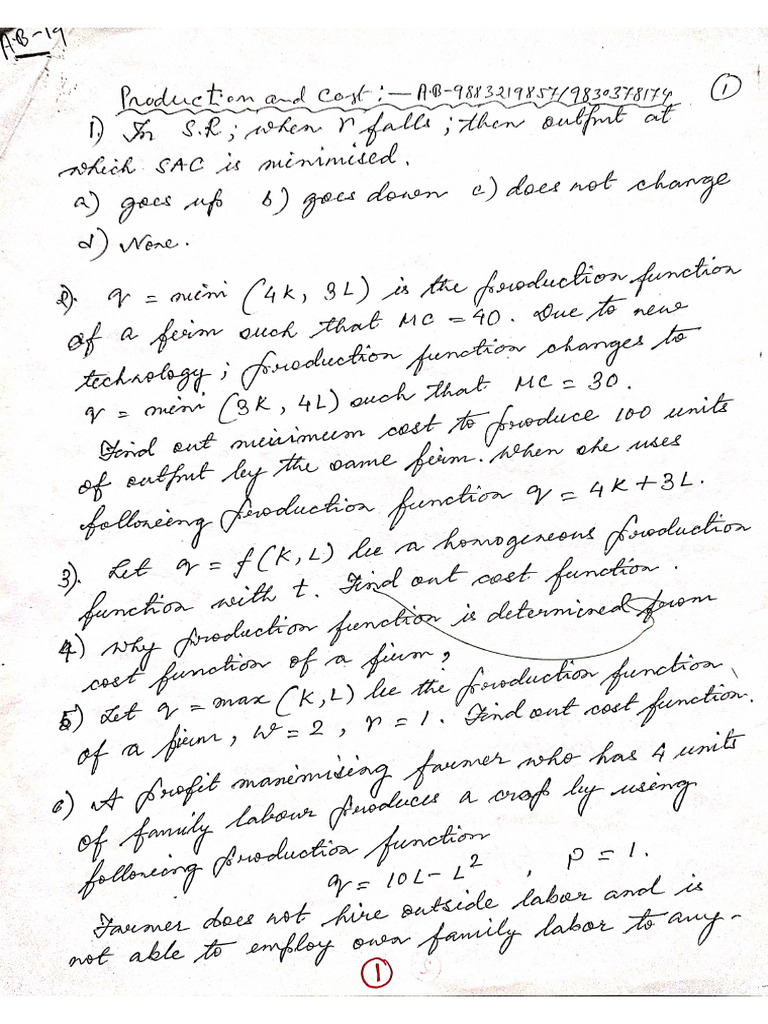 A.B-19
Production and Cost :— A.B-9883219857/9830378174 (1)
1.) In S.R; when r falls; then output at
which SAC is minimised.
a) goes up b) goes down c) does not change
d) None.
2). q = mini (4K, 3L) is the production function
of a firm such that MC = 40. Due to new
technology; production function changes to
q = mini (3K, 4L) such that MC = 30.
Find out minimum cost to produce 100 units
of output by the same firm. When she uses
following production function q = 4K + 3L.
3). Let q = f(K, L) be a homogeneous production
function with t. Find out cost function.
4) Why production function is determined from
cost function of a firm?
5) Let q = max (K, L) be the production function
of a firm, W = 2, r = 1. Find out cost function.
6) A profit maximising farmer who has 4 units
of family labour produces a crop by using
following production function
q = 10L - L², P = 1.
Farmer does not hire outside labor and is
not able to employ own family labor to any-
(1)